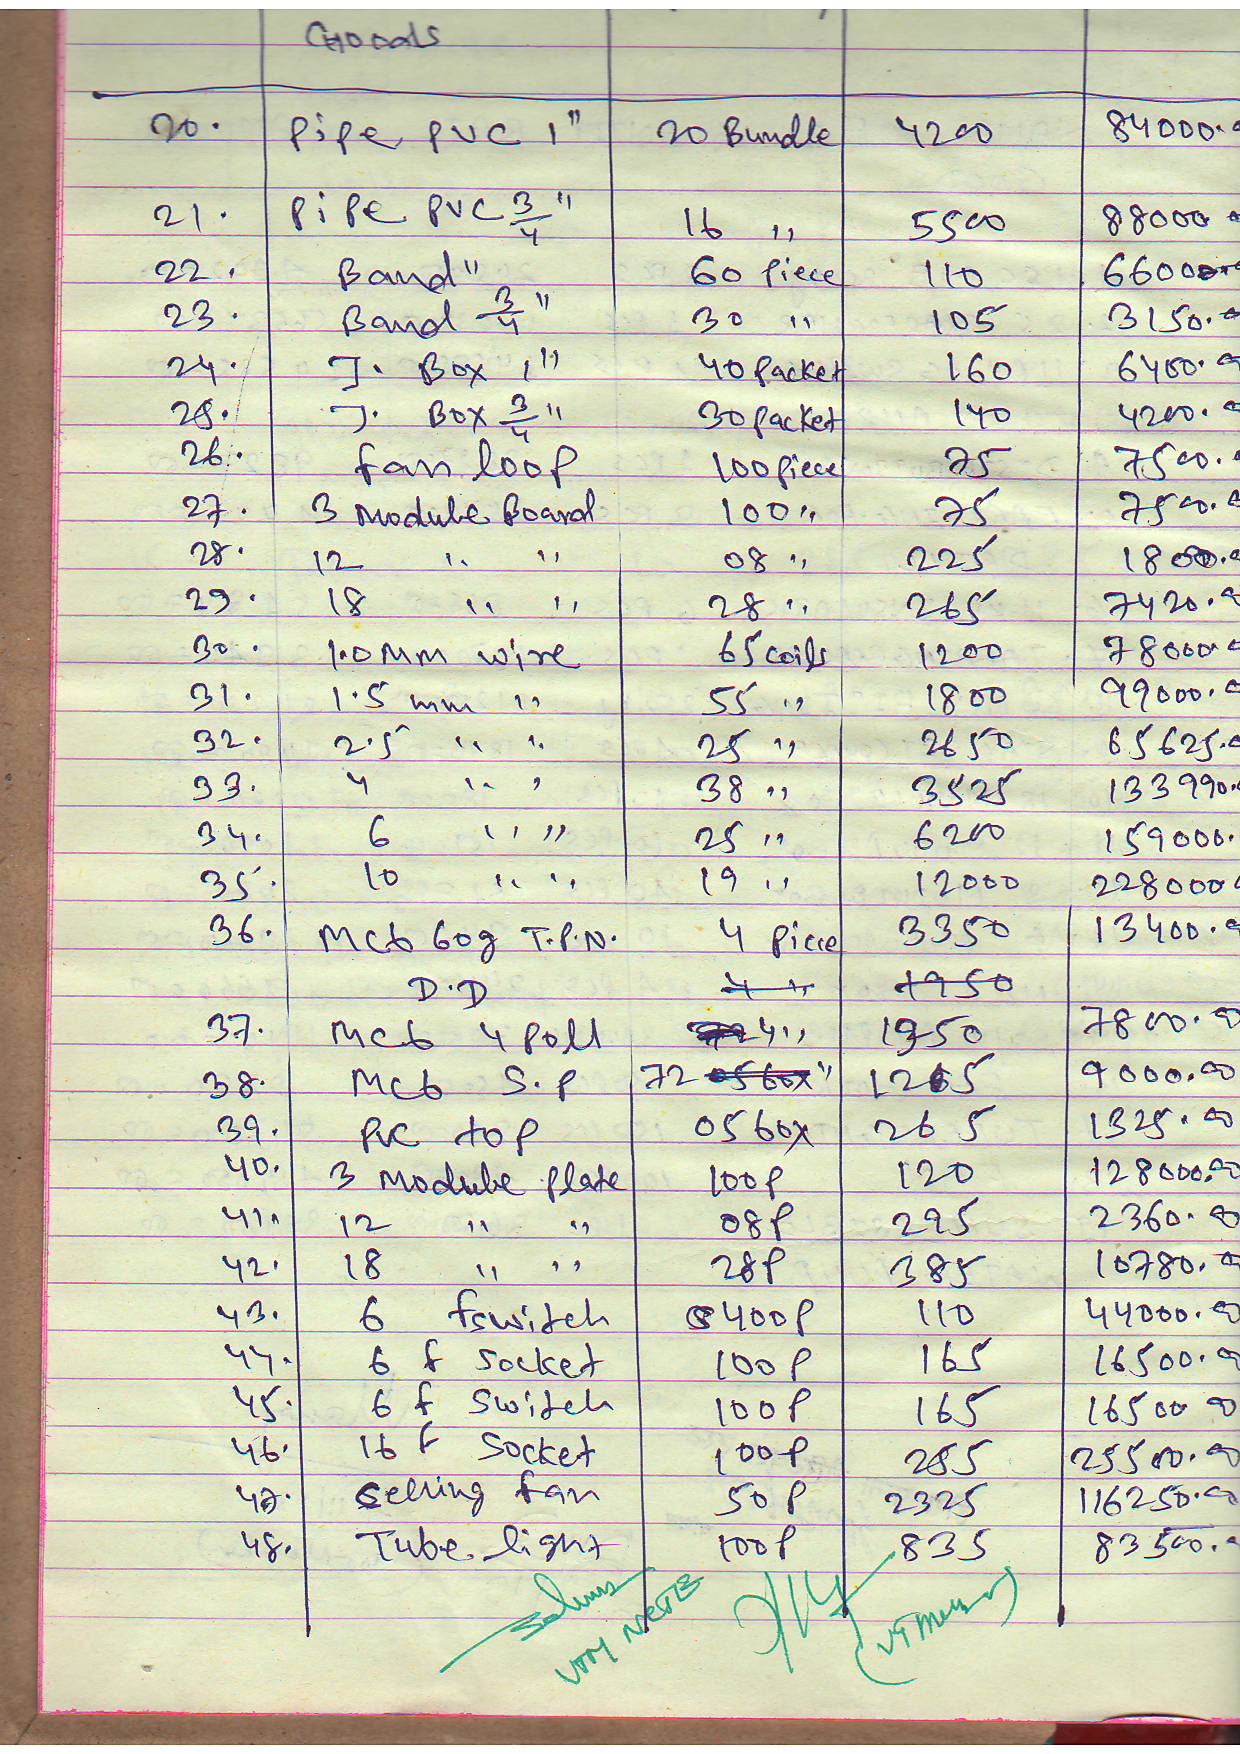 Goods
20. Pipe PVC 1" 20 Bundle 4200 84000.00
21. Pipe PVC 3/4" 16 " 5500 88000.00
22. Band " 60 Piece 110 6600.00
23. Band 3/4" 30 " 105 3150.00
24. J. Box 1" 40 Packet 160 6400.00
25. J. Box 3/4" 30 Packet 140 4200.00
26. fan loop 100 piece 75 7500.00
27. 3 Module Board 100 " 75 7500.00
28. 12 " " 08 " 225 1800.00
29. 18 " " 28 " 265 7420.00
30. 1.0 MM wire 65 coils 1200 78000.00
31. 1.5 mm " 55 " 1800 99000.00
32. 2.5 " " 25 " 2650 65625.00
33. 4 " " 38 " 3525 133990.
34. 6 " " 25 " 6200 159000.
35. 10 " " 19 " 12000 228000
36. Mcb 60g T.P.N. 4 piece 3350 13400.00
D.D 4 " 1950
37. Mcb 4 Poll 4 " 1950 7800.00
38. Mcb S.P 72 " 1265 9000.00
39. PVC top 05 box 265 1325.00
40. 3 Module plate 100 P 120 128000.00
41. 12 " " 08 P 295 2360.00
42. 18 " " 28 P 385 10780.00
43. 6 f switch 400 P 110 44000.00
44. 6 f Socket 100 P 165 16500.00
45. 6 f Switch 100 P 165 16500 00
46. 16 f Socket 100 P 255 25500.00
47. Selling fan 50 P 2325 116250.00
48. Tube light 100 P 835 83500.